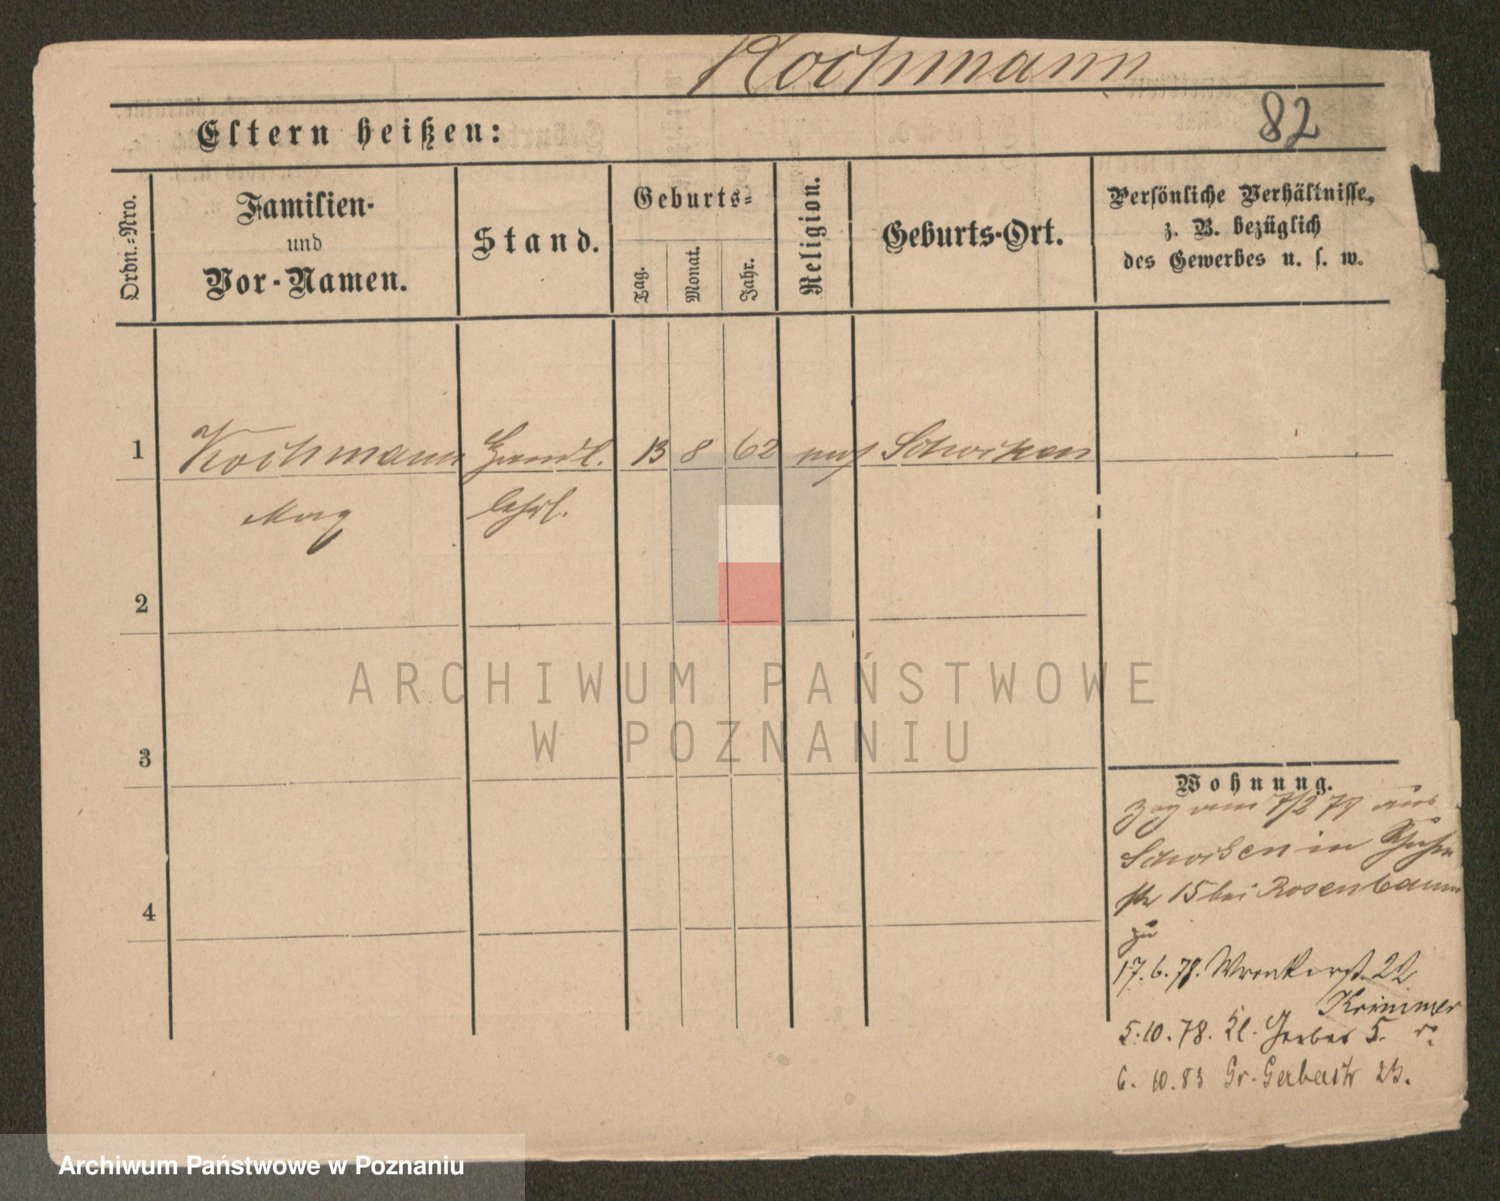 Kochmann
82
Eltern heißen:
Ordn.-Nro.
Familien-
und
Vor-Namen.
Stand.
Geburts-
Tag.
Monat.
Jahr.
Religion.
Geburts-Ort.
Persönliche Verhältnisse,
z. B. bezüglich
des Gewerbes u. s. w.
1 Kochmann Handl. 13 8 62 mos Schocken
Max Lehrl.
2
ARCHIWUM PAŃSTWOWE
W POZNANIU
3
Wohnung.
zog am 7/2 78 aus
Schocken in
str 15 bei Rosenbaum
zu
17.6.78. Wronkerst. 22
Krimmer
5.10.78. Kl. Gerber 5.
4
6. 10.83 Gr. Gerberstr 23.
Archiwum Państwowe w Poznaniu